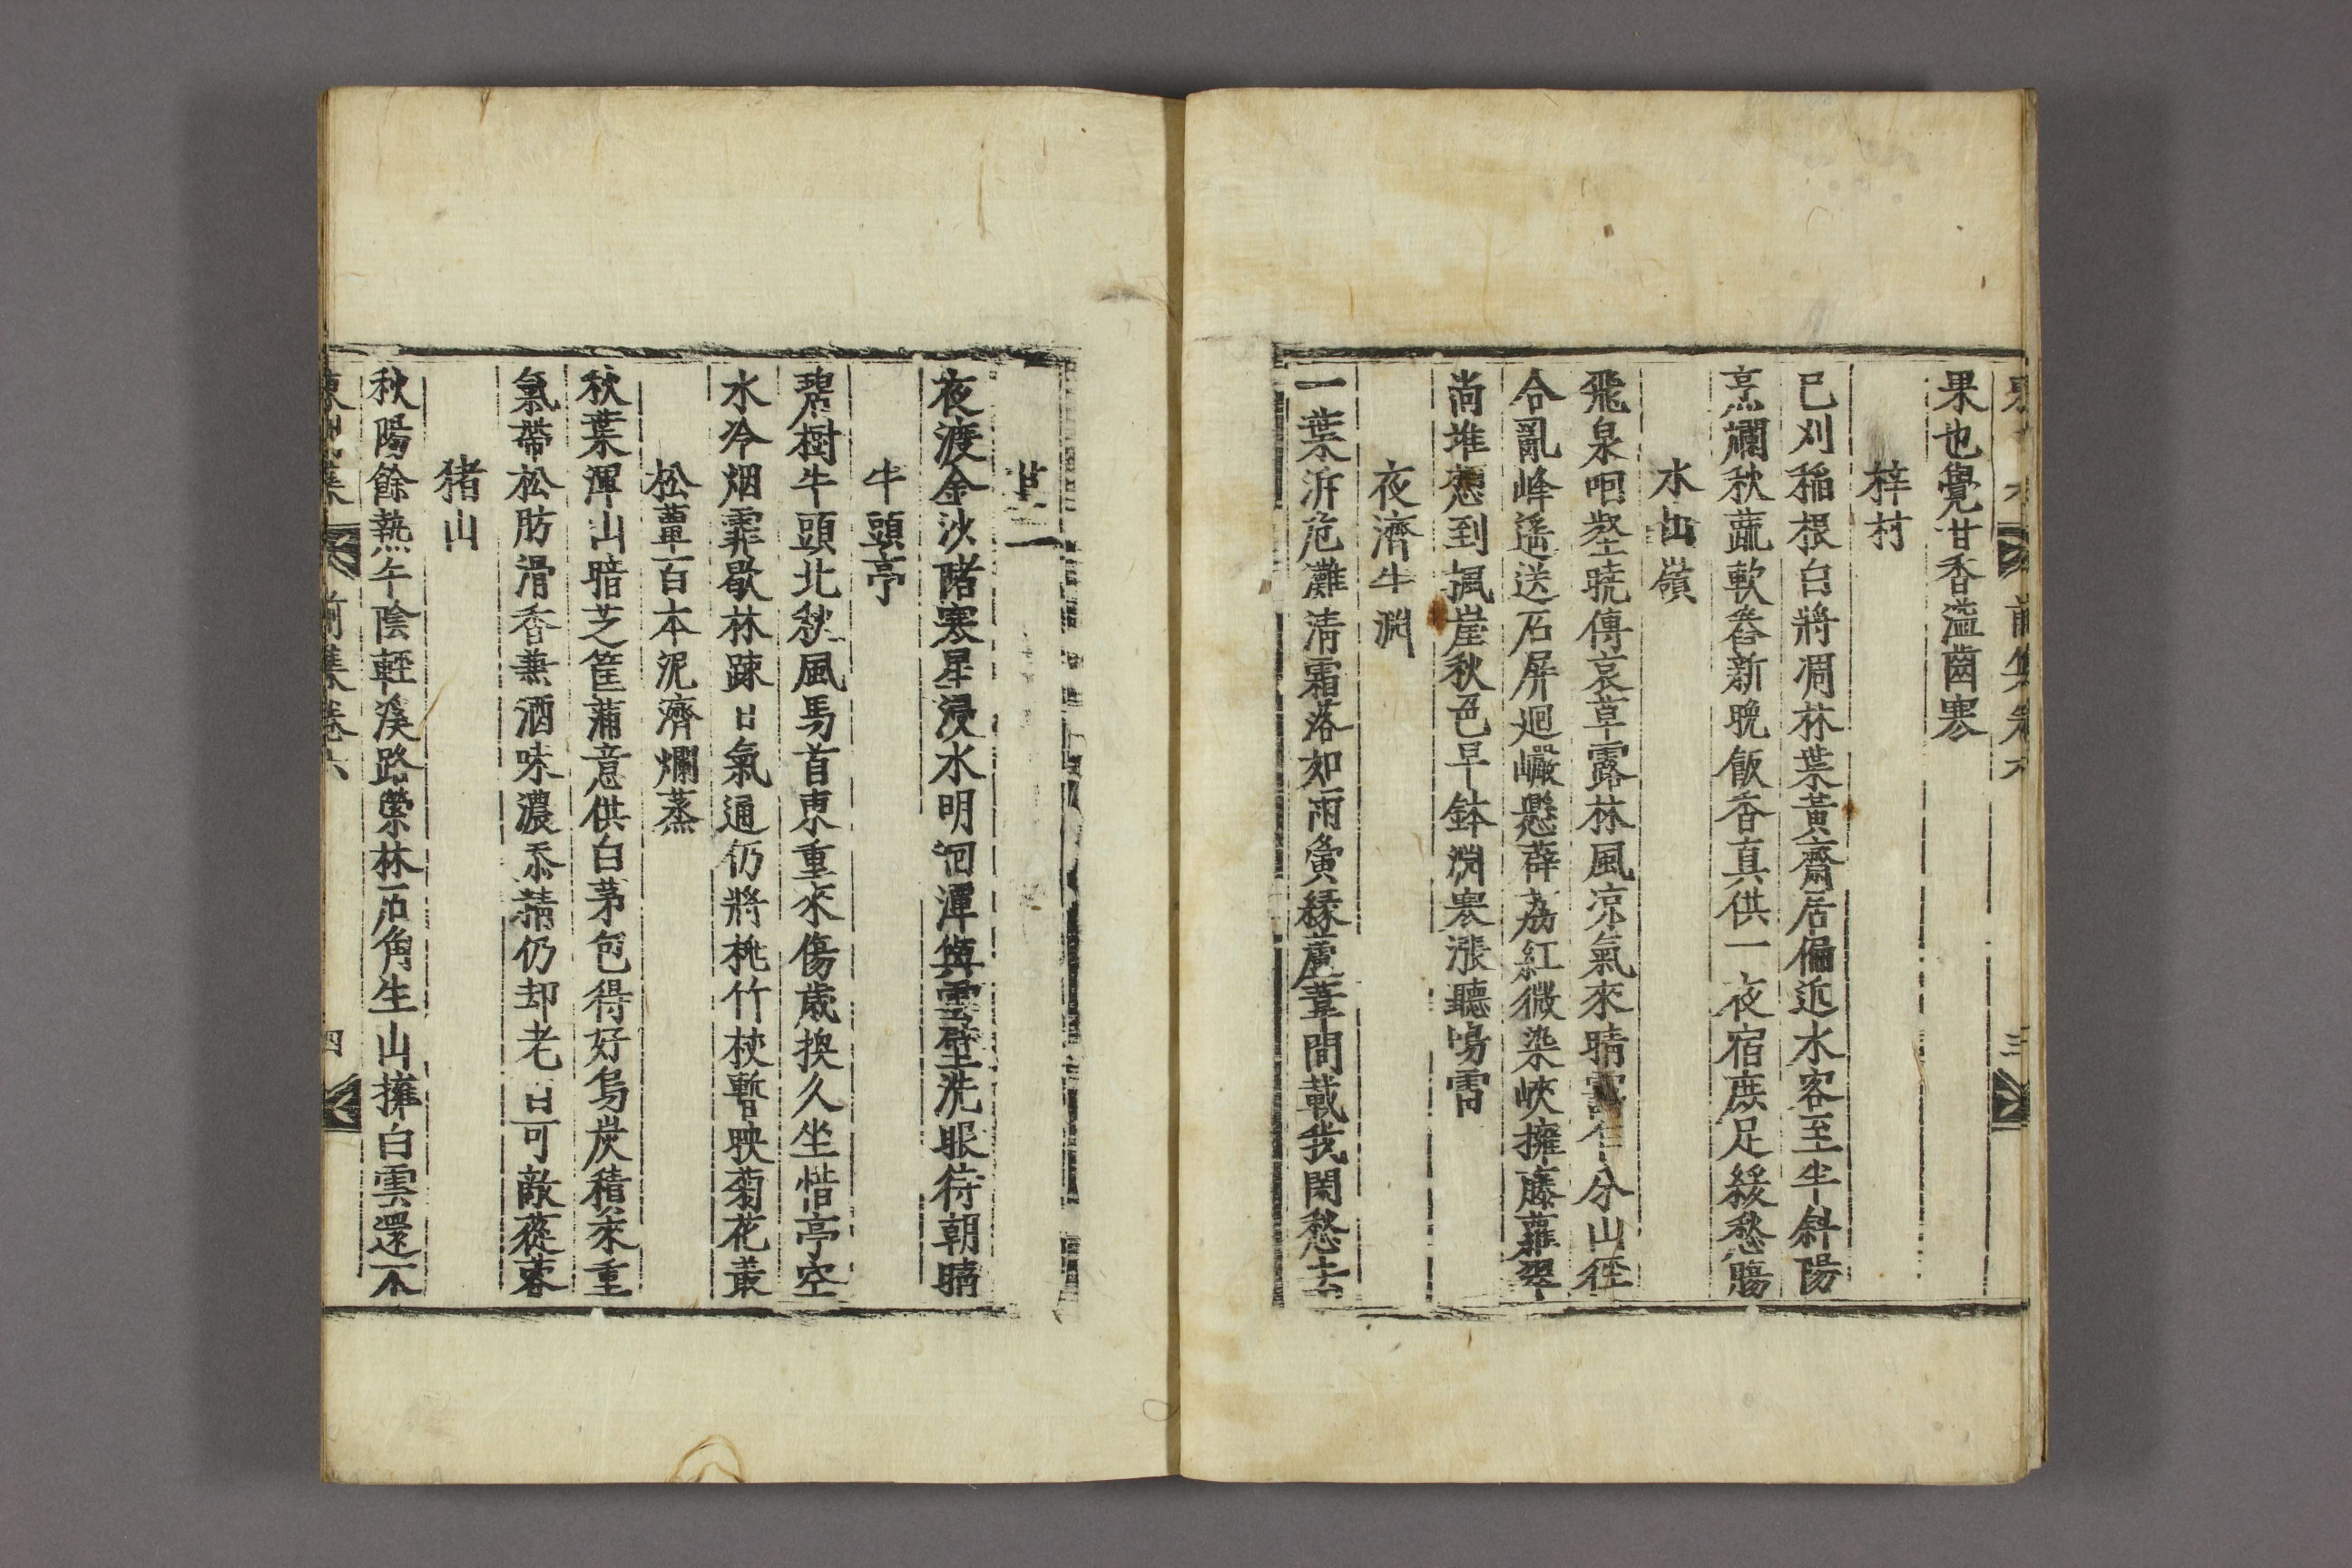 果也覺甘香溢齒寒
梓村
已刈稻根白將凋林葉黃齋居偏近水客至半斜陽
烹爛秋蔬軟舂新晚飯香真供一夜宿庶足緩愁膓
水出嶺
飛泉咽壑曉傳哀草露林風凉氣來晴 乍分山徑
合亂峰遙送石屏迴巖懸薜荔紅微染峽擁藤蘿翠
尚堆憊到楓崖秋色早鉢淵寒漲聽鳴雷
夜濟牛淵
一葉泝危灘清霜落如雨夤緣蘆葦間載我閑愁去
其二
夜渡金沙陼寒星浸水明洄潭與雪壁洗眼待朝晴
牛頭亭
碧樹牛頭北秋風馬首東重來傷歲換久坐惜亭空
水冷烟霏歇林踈日氣通仍將桃竹杖暫映菊花叢
松蕈百本泥濟爛蒸
秋葉渾山暗芝筐滿意供白茅包得好烏炭積來重
氣帶松肪滑香兼酒味濃忝 仍却老日可敵蓯蓉
猪山
秋陽餘熱午陰輕溪路縈林石角生山擁白雲還不
東 集 前集卷六 四